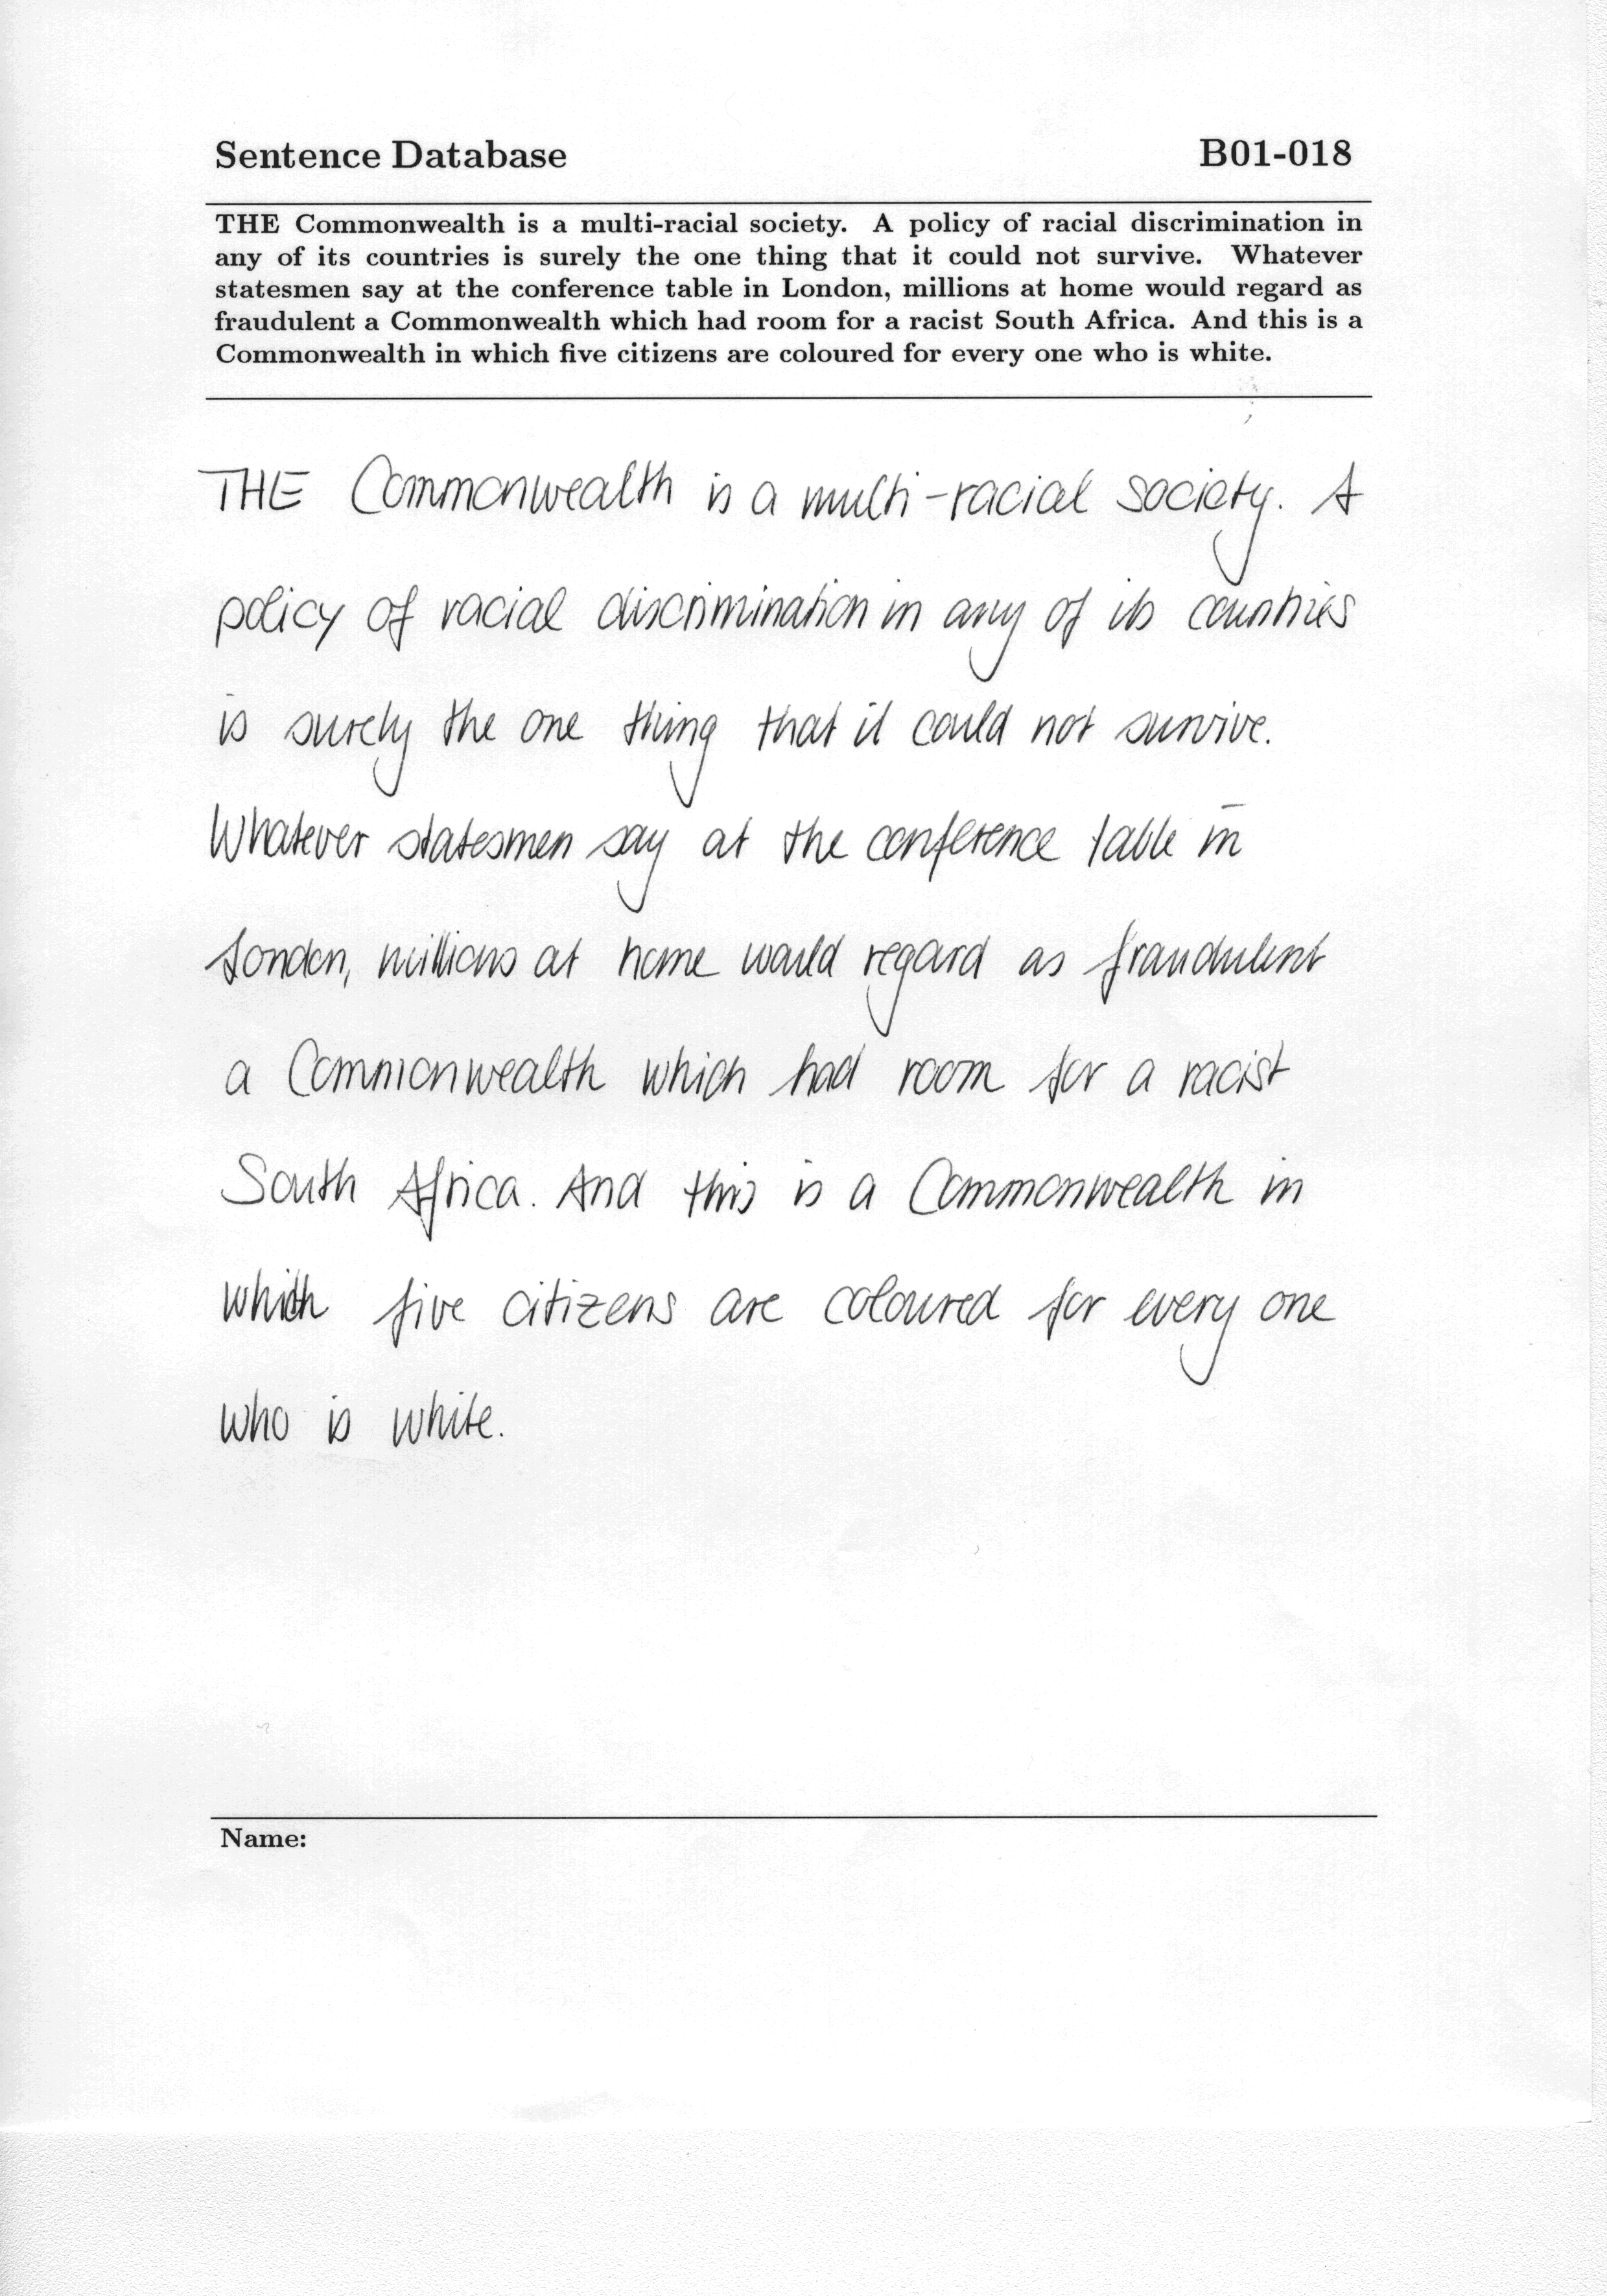 Sentence Database B01-018
THE Commonwealth is a multi-racial society. A policy of racial discrimination in
any of its countries is surely the one thing that it could not survive. Whatever
statesmen say at the conference table in London, millions at home would regard as
fraudulent a Commonwealth which had room for a racist South Africa. And this is a
Commonwealth in which five citizens are coloured for every one who is white.
THE Commonwealth is a multi-racial society. A
policy of racial discrimination in any of its countries
is surely the one thing that it could not survive.
Whatever statesmen say at the conference table in
London, millions at home would regard as fraudulent
a Commonwealth which had room for a racist
South Africa. And this is a Commonwealth in
which five citizens are coloured for every one
who is white.
Name: